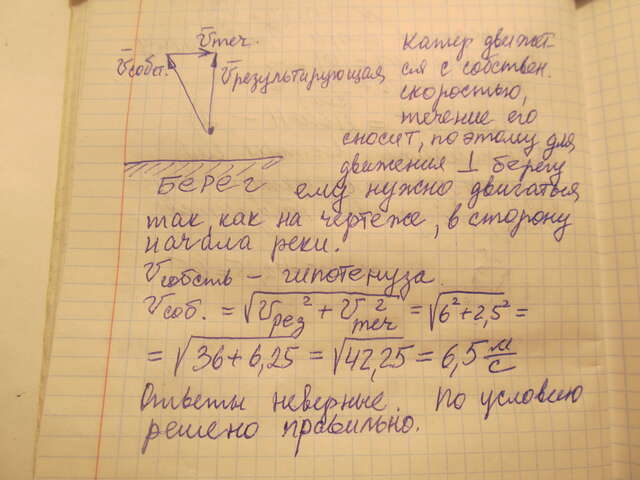 V̄теч.
V̄собст.
V̄результирующая
Катер движет-
ся с собствен.
скоростью,
течение его
сносит, поэтому для
движения ⊥ берегу
БЕРЕГ
ему нужно двигаться
так, как на чертеже, в сторону
начала реки.
Vсобств – гипотенуза.
Vсоб. = √(Vрез² + Vтеч²) = √(6² + 2,5²) =
= √(36 + 6,25) = √(42,25) = 6,5 м/с
Ответы неверные. По условию
решено правильно.